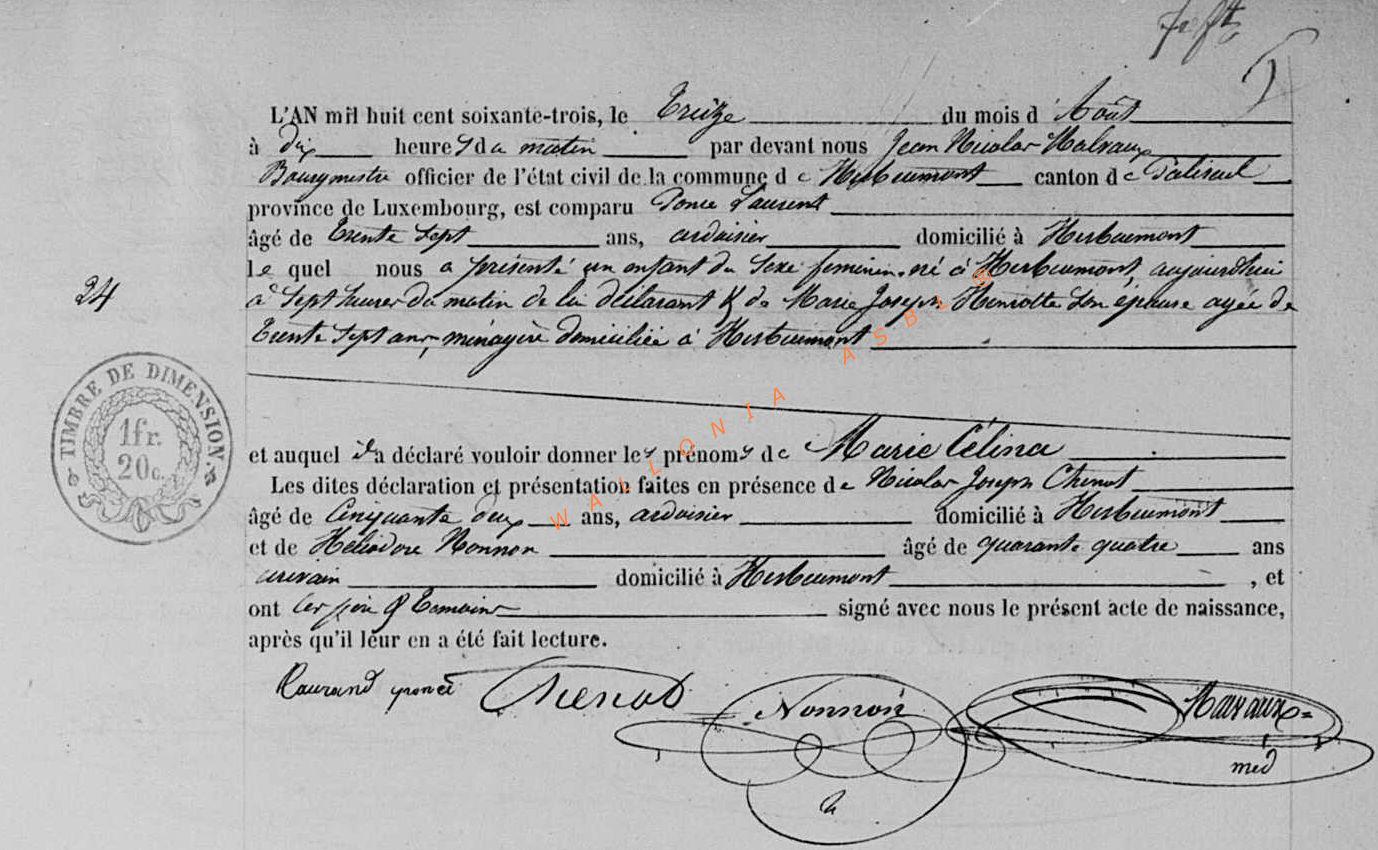 L'AN mil huit cent soixante-trois, le Treize du mois d'Août
à dix heures du matin par devant nous Jean Nicolas Malvaux
Bourgmestre officier de l'état civil de la commune de Herbeumont canton de Paliseul
province de Luxembourg, est comparu Ponce Laurent
âgé de Trente Sept ans, ardoisier domicilié à Herbeumont
lequel nous a présenté un enfant du Sexe feminin né à Herbeumont, aujourd'hui
24
à Sept heures du matin de lui déclarant & de Marie Joseph Henrotte Son épouse agée de
Trente Sept ans, ménagère domiciliée à Herbeumont
TIMBRE DE DIMENSION
1 fr.
20 c.
et auquel il a déclaré vouloir donner les prénoms de Marie Célina
Les dites déclaration et présentation faites en présence de Nicolas Joseph Chenot
âgé de Cinquante deux ans, ardoisier domicilié à Herbeumont
et de Héliodore Nonnon âgé de quarante quatre ans
domicilié à Herbeumont, et
ont les père & Temoins signé avec nous le présent acte de naissance,
après qu'il leur en a été fait lecture.
Laurand ponce Chenot Nonnon
méd
WALLONIA ASBL